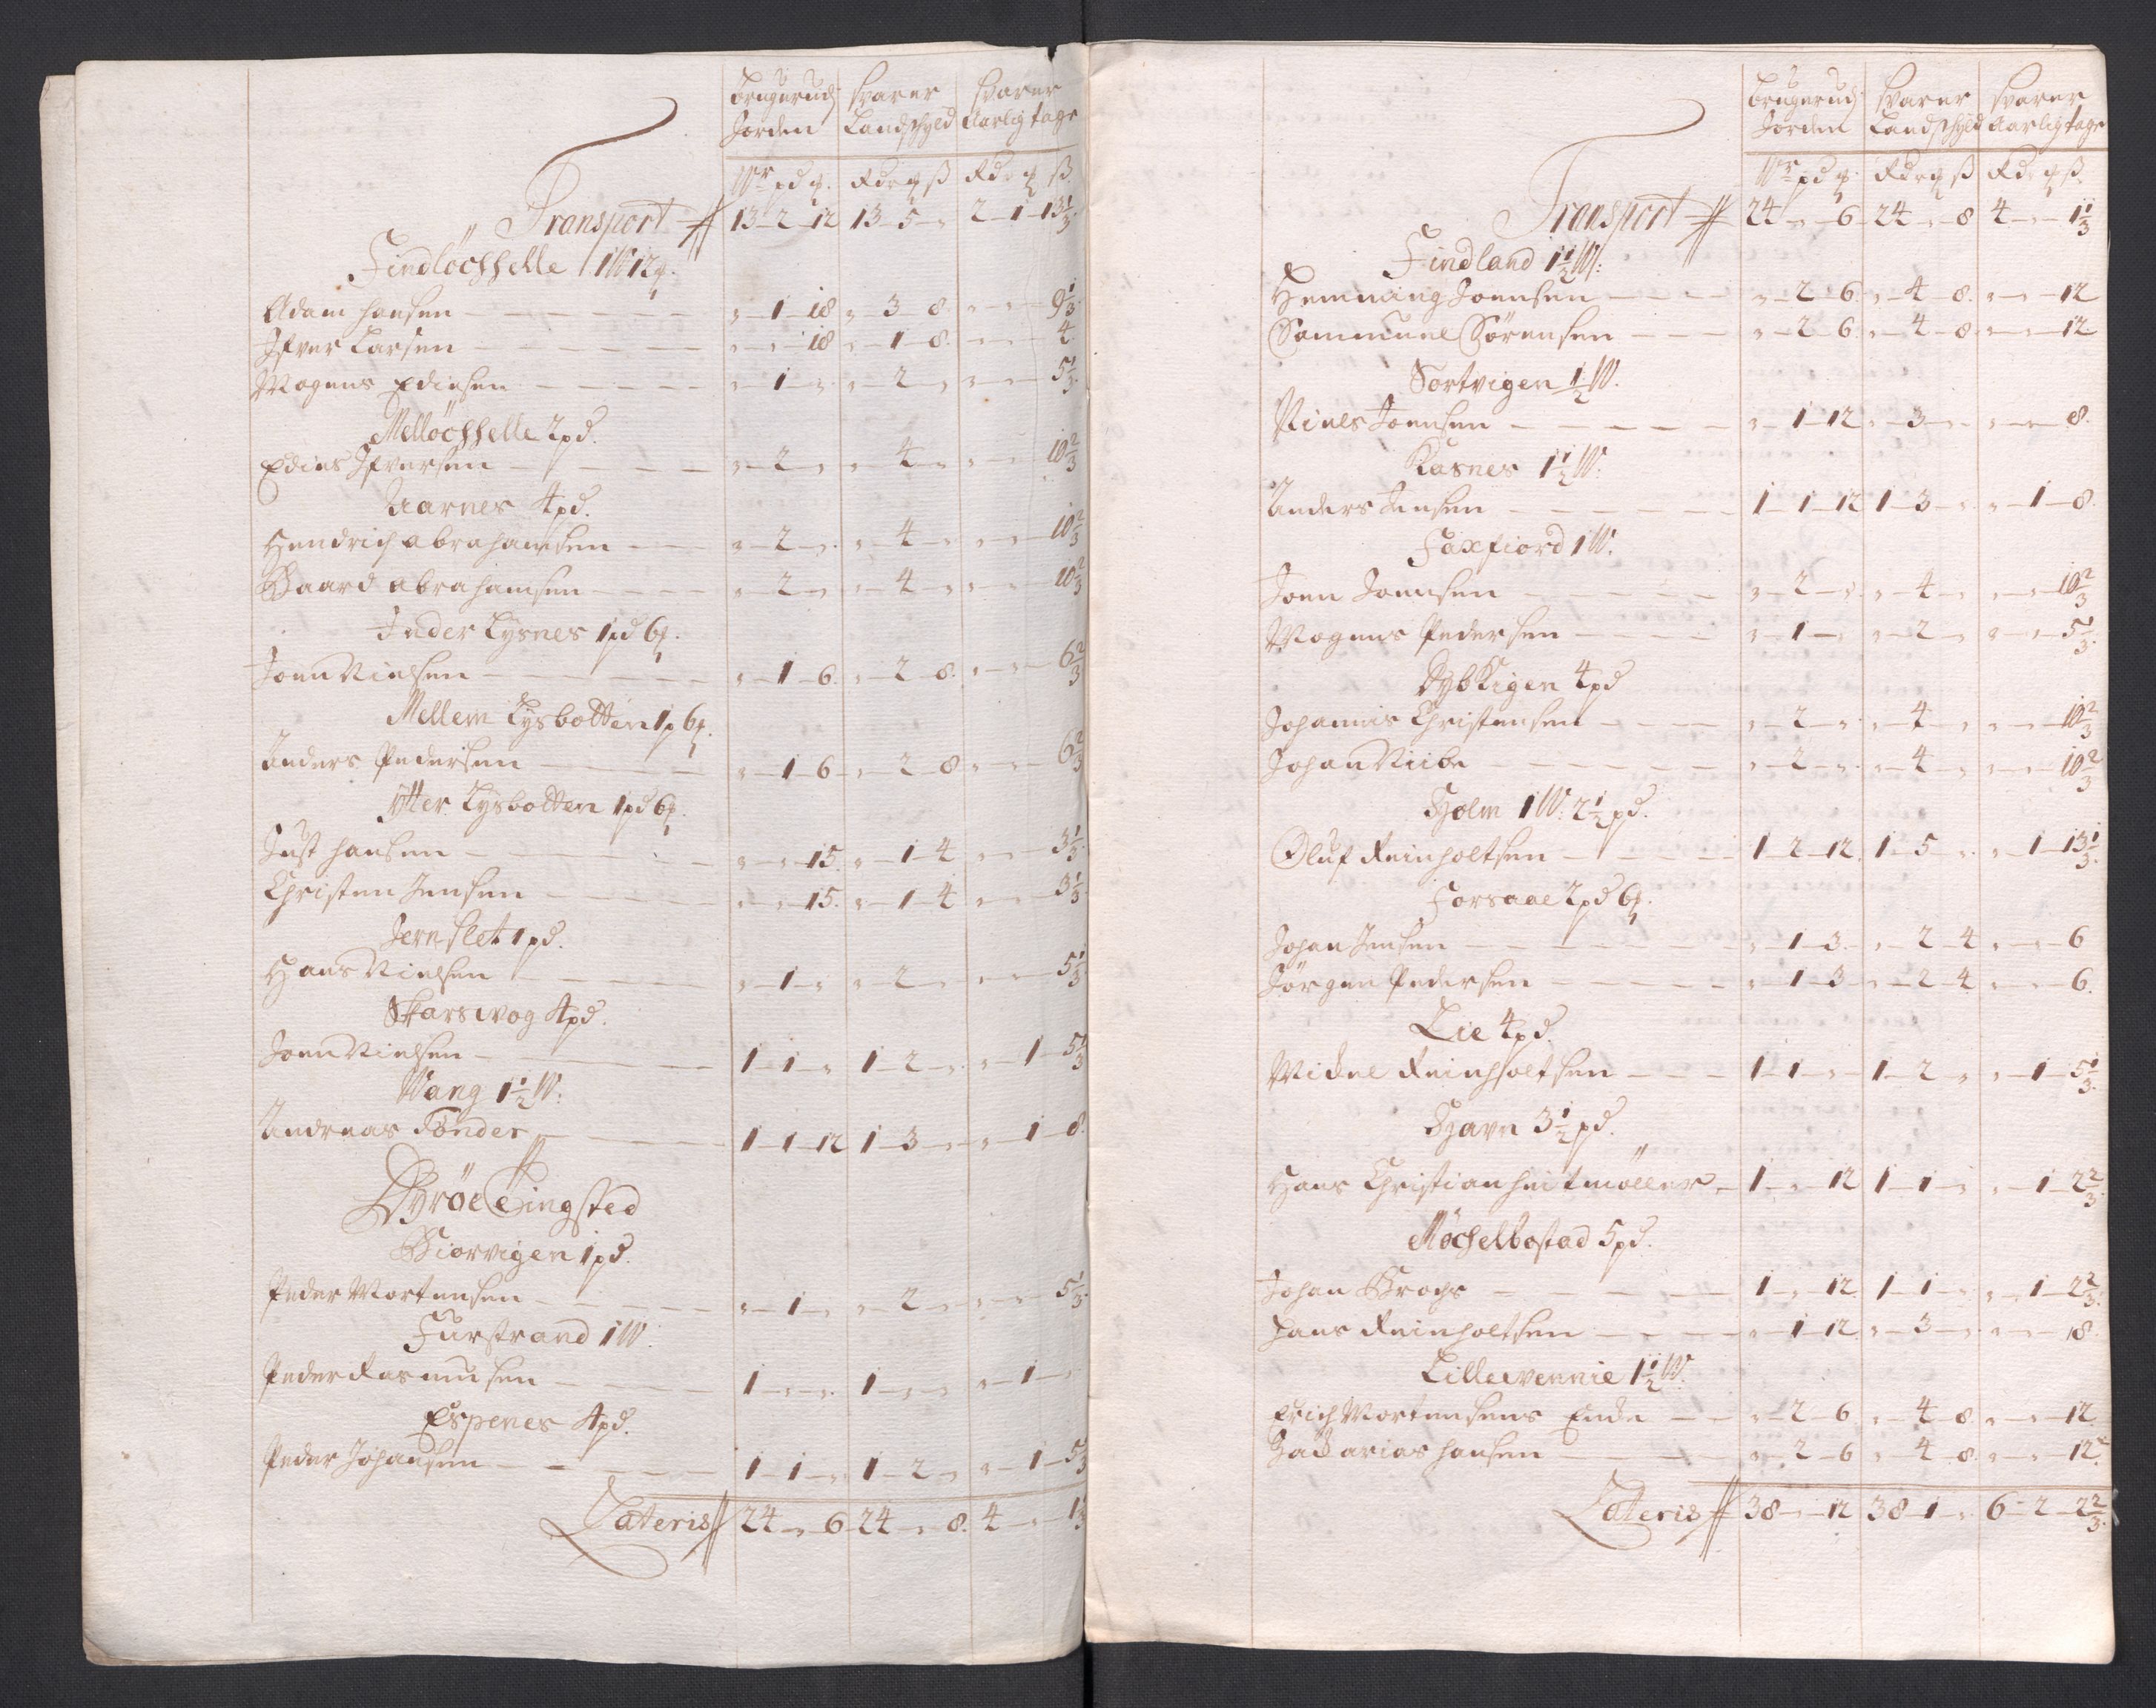 brugerudj svarer svarer
Jorden Landschyld Aarlig tage
Wr pd ɱ. Rdr ɱ ß Rdr ɱ ß
Transport 13 - 2 - 12 13 - 5 - „ 2 - 1 - 13 1/3
Findlöchhelle 1 W 12 ɱ.
Adam Hansen „ - 1 - 18 „ - 3 - 8 „ - „ - 9 1/3
Ifver Larsen „ - „ - 18 „ - 1 - 8. „ - „ - 4
Mogens Edisen „ - 1 - „ „ - 2 - „ „ - „ - 5 1/3
Mellöchhelle 2 pd.
Edies Ifversen „ - 2 - „ „ - 4 - „ „ - „ - 10 2/3
Aarnes 4 pd.
Hendrich Abrahamsen „ - 2 - „ „ - 4 - „ „ - „ - 10 2/3
Baard Abrahamsen „ - 2 - „ „ - 4 - „ „ - „ - 10 2/3
Inder Lysnes 1 pd 6 ɱ.
Joen Nielsen „ - 1 - 6. „ - 2 - 8. „ - „ - 6 2/3
Mellem Lysbotten 1 p 6 ɱ.
Anders Pedersen „ - 1 - 6 „ - 2 - 8 „ - „ - 6 2/3
Ytter Lysbotten 1 pd 6 ɱ.
Just Hansen „ - „ - 15. „ - 1 - 4 „ - „ - 3 1/3
Christen Jensen „ - „ - 15. „ - 1 - 4 „ - „ - 3 1/3
Jernslet 1 pd.
Hans Nielsen „ - 1 - „ „ - 2 - „ „ - „ - 5 1/3
Skarswog 4 pd.
Joen Nielsen 1 - 1 - „ 1 - 2 - „ „ - 1 - 5 1/3
Wang 1 1/2 W.
Andreas Tönder 1 - 1 - 12 1 - 3 - „ „ - 1 - 8.
Dyröe Tingsted
Biorvigen 1 pd.
Peder Mortensen „ - 1 - „ „ - 2 - „ „ - „ - 5 1/3
Furstrand 1 W.
Peder Rasmusen 1 - „ - „ 1 - „ - „ „ - 1 - „
Espenes 4 pd.
Peder Johansen 1 - 1 - „ 1 - 2 - „ „ - 1 - 5 1/3
Lateris 24 - „ - 6 24 - „ - 8. 4 - „ - 1 1/3
brugerudj svarer svarer
Jorden Landschyld Aarlig tage
Wr pd ɱ. Rdr ɱ ß Rdr ɱ ß.
Transport 24 - „ - 6 24 - „ - 8 4 - „ - 1 1/3
Findland 1 1/2 W.
Hemming Joensen „ - 2 - 6. „ - 4 - 8. „ - „ - 12
Sammuel Sörensen „ - 2 - 6. „ - 4 - 8. „ - „ - 12
Sortvigen 1/2 W.
Niels Joensen „ - 1 - 12 „ - 3 - „ „ - „ - 8.
Kasnes 1 1/2 W.
Anders Jensen 1 - 1 - 12 1 - 3 - „ „ - 1 - 8.
Faxfiord 1 W.
Joen Joensen „ - 2 - „ „ - 4 - „ „ - „ - 10 2/3
Mogens Pedersen „ - 1 - „ „ - 2 - „ „ - „ - 5 1/3
Dybvigen 4 pd
Johannis Christensen „ - 2 - „ „ - 4 - „ „ - „ - 10 2/3
Johan Viibe „ - 2 - „ „ - 4 - „ „ - „ - 10 2/3
Holm 1 W. 2 1/2 pd.
Oluf Reinholtsen 1 - 2 - 12. 1 - 5 - „ „ - 1 - 13 1/3
Forsaae 2 pd 6 ɱ.
Johan Jensen „ - 1 - 3. „ - 2 - 4 „ - „ - 6
Jörgen Pedersen „ - 1 - 3 „ - 2 - 4 „ - „ - 6.
Lie 4 pd.
Mickel Reinholtsen 1 - 1 - „ 1 - 2 - „ „ - 1 - 5 1/3
Havn 3 1/2 pd.
Hans Christian Heitmöller 1 - „ - 12 1 - 1 - „ „ - 1 - 2 2/3
Möchelbostad 5 pd.
Johan Krogh 1 - „ - 12 1 - 1 - „ „ - 1 - 2 2/3
Hans Reinholtsen „ - 1 - 12 „ - 3 - „ „ - „ - 8.
Lillewennie 1 1/2 W.
Erich Mortensens Encke „ - 2 - 6 „ - 4 - 8 „ - „ - 12
Zackarias Hansen „ - 2 - 6 „ - 4 - 8. „ - „ - 12.
Lateris 38 - „ - 12 38 - 1 - „ 6 - 2 - 2 2/3